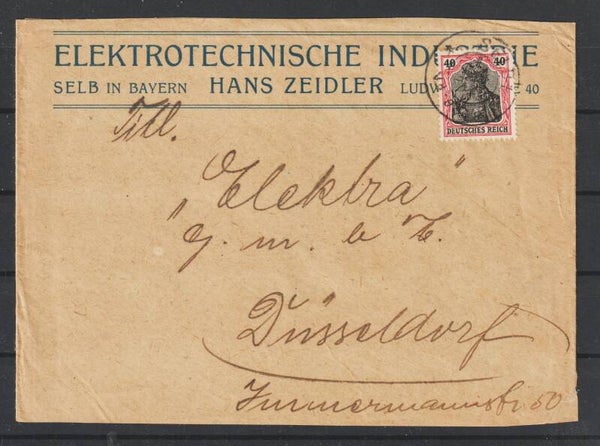 ELEKTROTECHNISCHE INDUSTRIE
SELB IN BAYERN HANS ZEIDLER LUDW 40
40 40
DEUTSCHES REICH
Titl.
„Elektra"
G. m. b. H.
Düsseldorf
Immermannstr 50